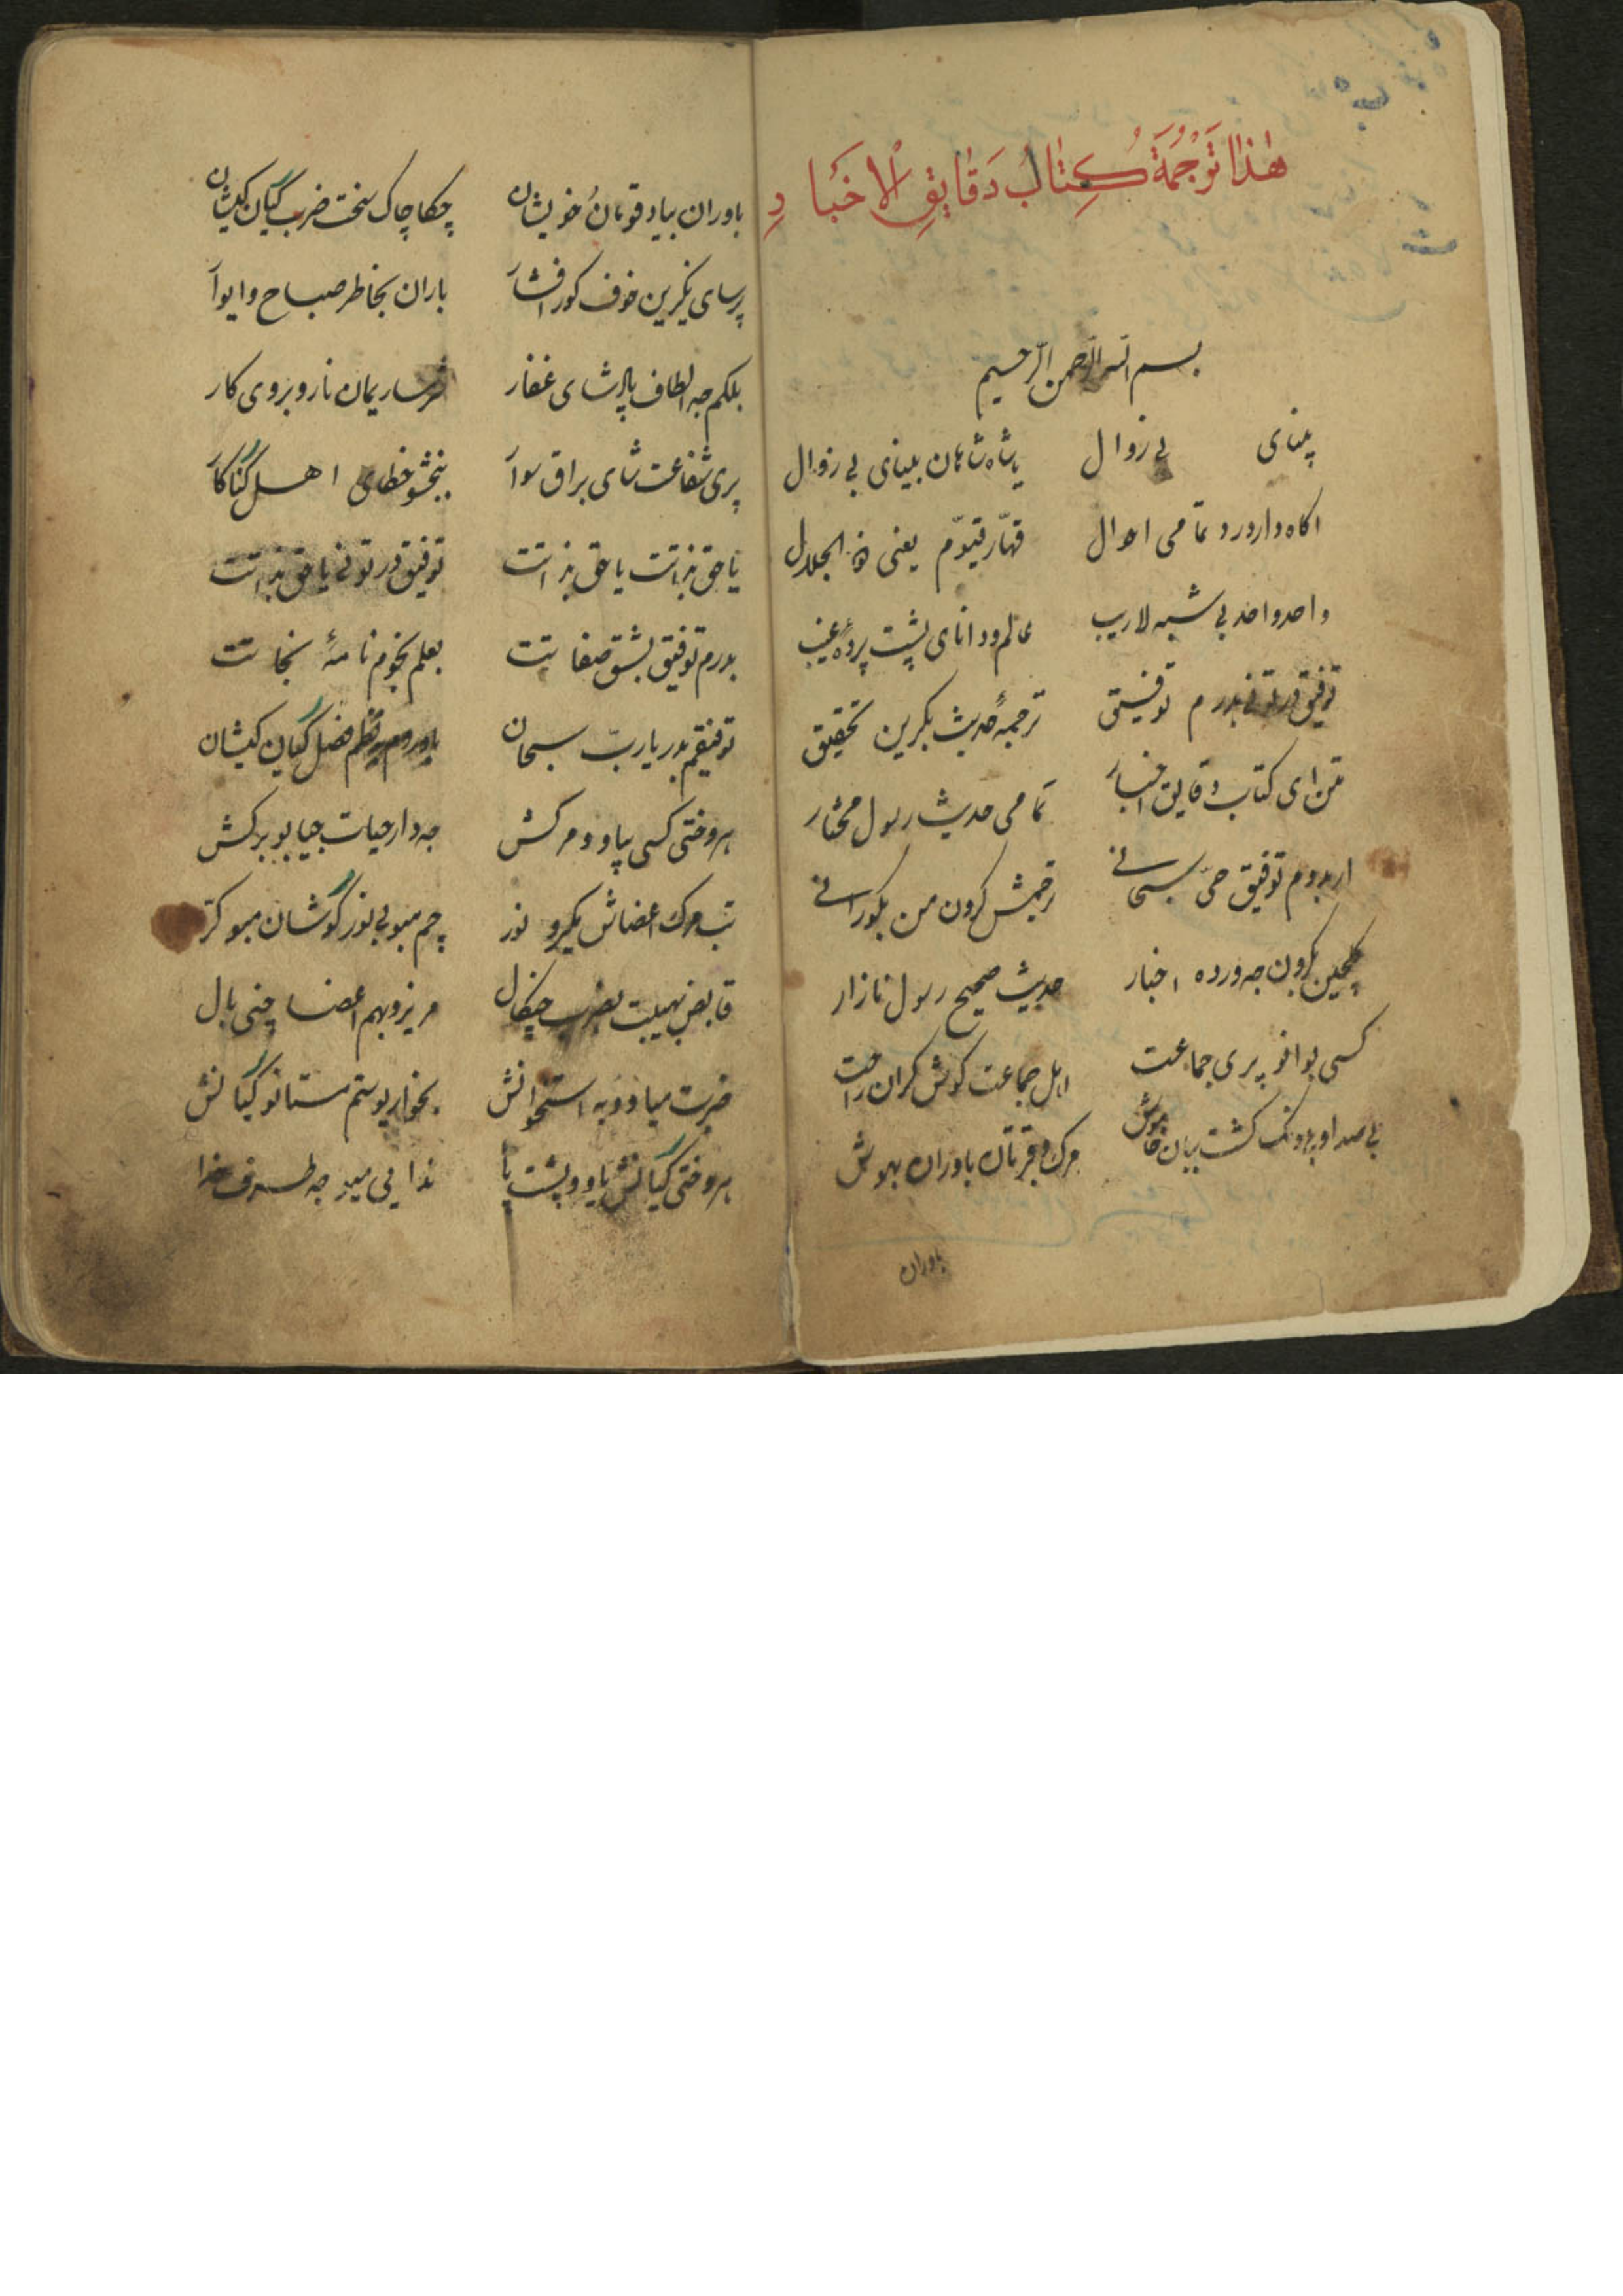 هٰذا تَرْجُمَةُ كِتٰابُ دَقٰايِقِ الْاَخْبٰارِ
بسم الله الرحمن الرحيم
پینای بی زوال یا شاه شاهان بینای بی زوال
اکاه وارورد تمامی احوال قهّار قیّوم یعنی ذو الجلال
واحد واحد بی شبه لاریب عالم و دانای پشت پردهٔ غیب
توفیق در تونی بدرم توفیق ترجمهٔ حدیث بکرین تحقیق
متن ای کتاب دقایق اخبار تمامی حدیث رسول مختار
ار بدوم توفیق حیّ سبحانی ترجمیش کرون من بکورانی
کلچین بکرون جه ورده اخبار حدیث صحیح رسول نازار
کسی بوانو پری جماعت اهل جماعت کوش کران راحت
بی صدا و بی دنک کشت بیان خاموش مرک و قبرتان باوران بهوش
باوران
باوران بیاد قوتان خویشان چکاچاک سخت ضرب گیان کیشان
پرسای نکیرین خوف کور افشار باران بخاطر صباح و ایوار
بلکم جه الطاف پادشای غفار شرمساریمان نارو بروی کار
پری شفاعت شای براق سوار ببخشو خطای اهل گناکار
یا حق بذاتت یا حق بذاتت توفیق در تونی یا حق بذاتت
بدرم توفیق بشق صفاتت بعلم نجوم نامهٔ نجاتت
توفیقم بدر یا ربّ سبحان باوروم بنظم فصل گیان کیشان
هر وختی کسی پیاو و مرکش جه دار حیات جیا بو برکش
تب مرک اعضاش بکیرو نور چم مبو بی نور گوشان مبو کر
قابض بهیبت بضرب چنکال مریزو بهم اعضا چنی بال
ضربت میاوو به استخوانش بخواریوستم مستانو گیانش
هر وختی گیانش یاوو پشت پا ندایی میو جه طرف خدا